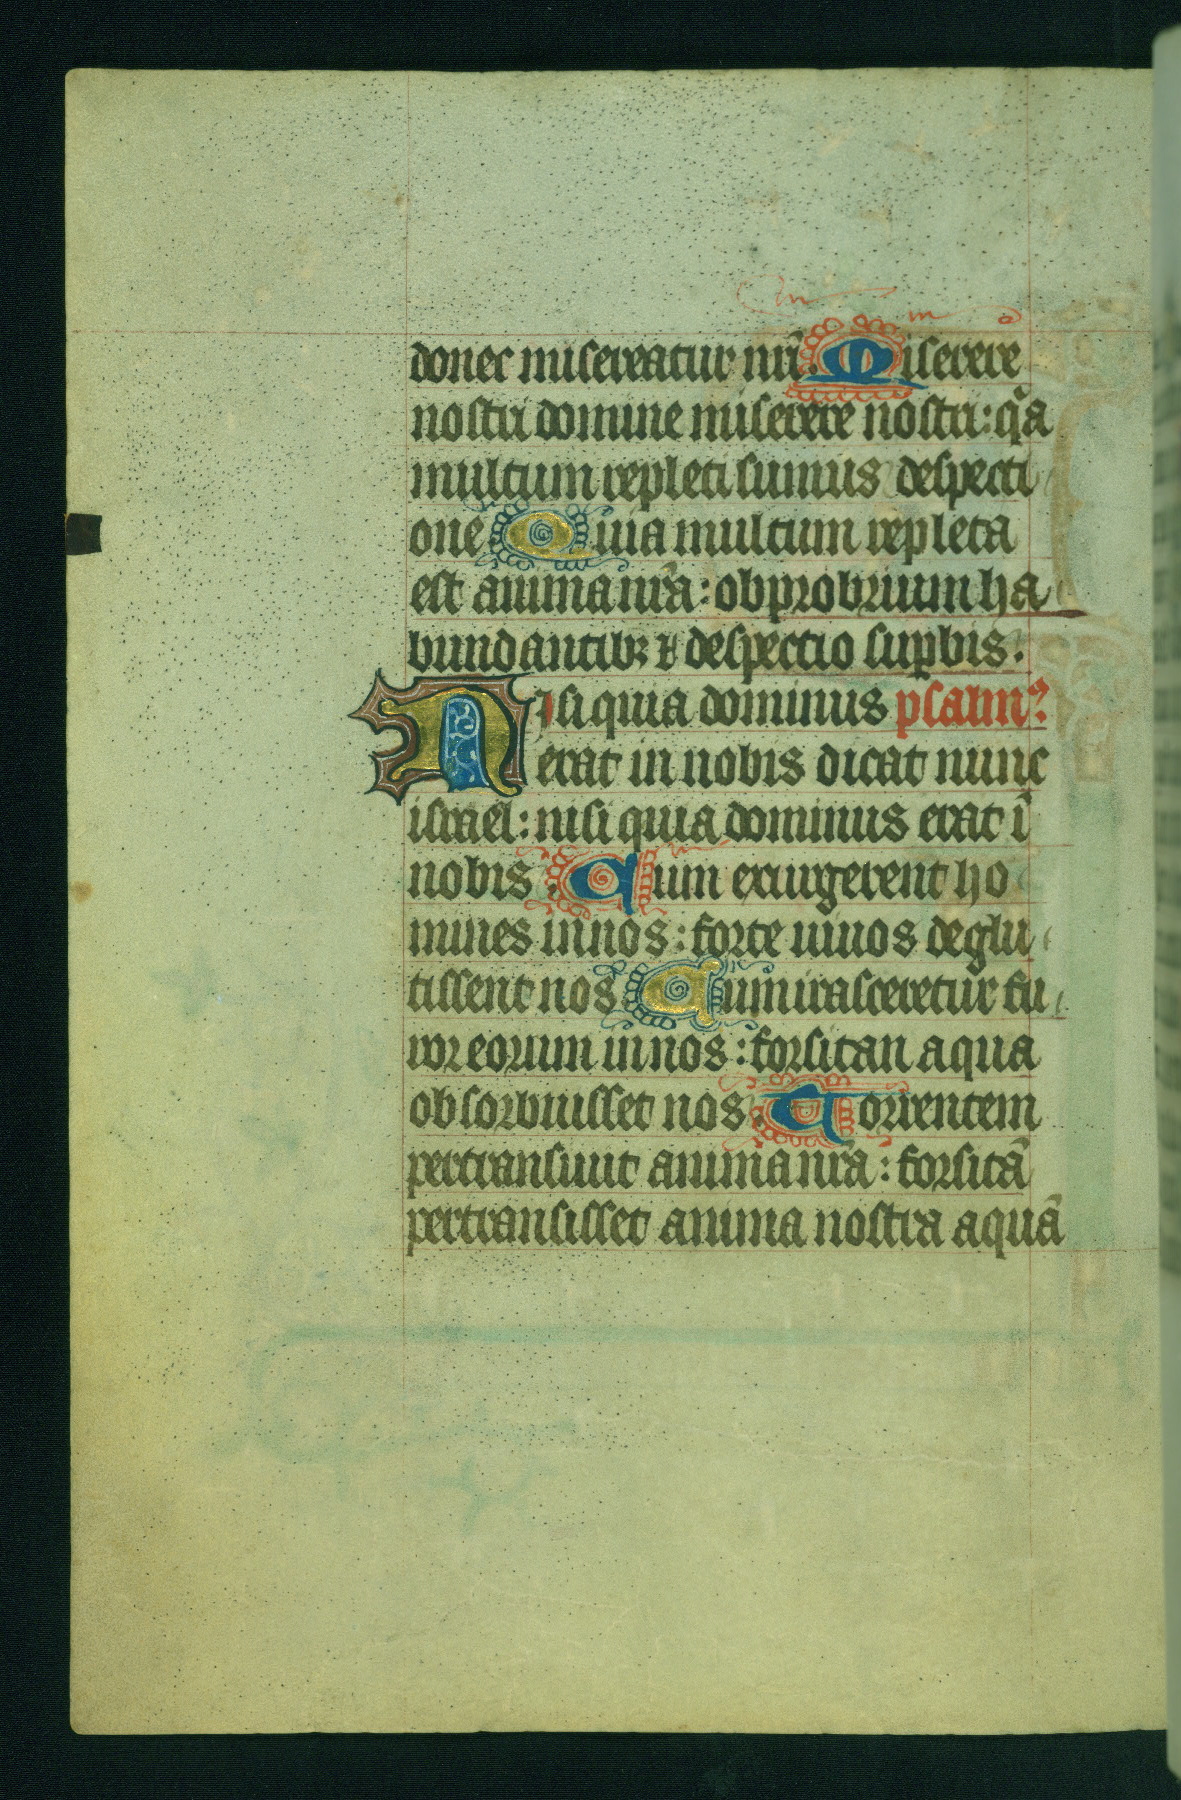 donec misereatur nr̃i. Miserere
nostri domine miserere nostri: q̃a
multum repleti sumus despecti
one Quia multum repleta
est anima nr̃a: obprobrium ha
bundantibꝫ ⁊ despectio suꝑbis.
Nisi quia dominus psalmꝰ
erat in nobis dicat nunc
israel: nisi quia dominus erat ĩ
nobis. Cum exurgerent ho
mines in nos: forte uiuos deglu
tissent nos Cum irasceretur fu
ror eorum in nos: forsitan aqua
obsorbuisset nos. Torrentem
pertransiuit anima nr̃a: forsitã
pertransisset anima nostra aquã